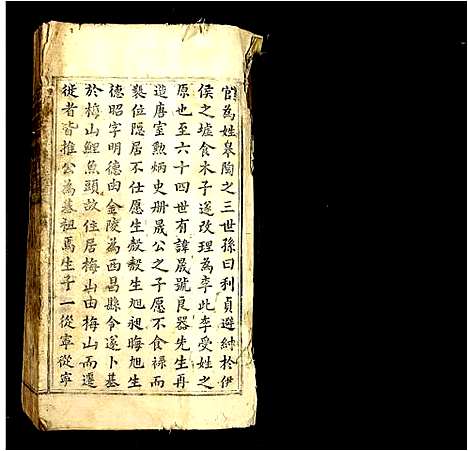 官為姓皋陶之三世孫曰利貞避紂於伊
侯之墟食木子遂改理為李此李受姓之
原也至六十四世有諱晟號良器先生再
造唐室勲炳史册晟公之子愿不食祿而
襲位隱居不仕愿生㲄㲄生旭晦旭生
德昭字明德由金陵為西昌縣令遂卜基
於梅山鯉魚頭故住居梅山由梅山而遷
徙者皆推公為基祖焉生子一從寧從寧